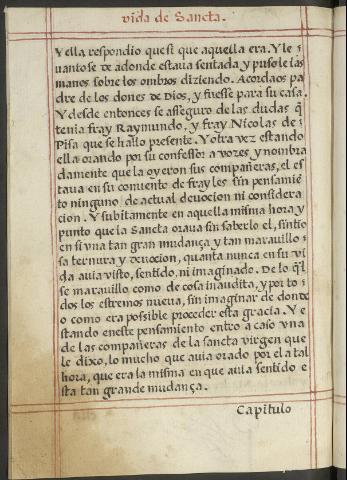 vida de Sancta.
Y ella respondio que si que aquella era. Y le-
uantose de adonde estaua sentada y puso le las
manos sobre los ombros diziendo. Acordaos pa
dre de los dones de Dios, y fuesse para su casa.
Y desde entonces se asseguro de las dudas q̃
tenia fray Raymundo, y fray Nicolas de-
Pisa que se hallo presente. Y otra vez estando
ella orando por su confessor a vozes y nombra
damente que la oyeron sus compañeras, el es
taua en su conuento de frayles sin pensamiẽ
to ninguno de actual deuocion ni considera
cion. Y subitamente en aquella misma hora y
punto que la Sancta oraua sin saberlo el, sintio
en si vna tan gran mudança y tan marauillo-
sa ternura y deuocion, quanta nunca en su vi
da auia visto, sentido, ni imaginado. De lo q̃l
se marauillo como de cosa inaudita, y por to-
dos los estremos nueua, sin imaginar de donde
o como era possible proceder esta gracia. Y e
stando en este pensamiento entro a caso vna
de las compañeras de la sancta virgen que
le dixo, lo mucho que auia orado por el a tal
hora, que era la misma en que auia sentido e
sta tan grande mudança.
Capitulo